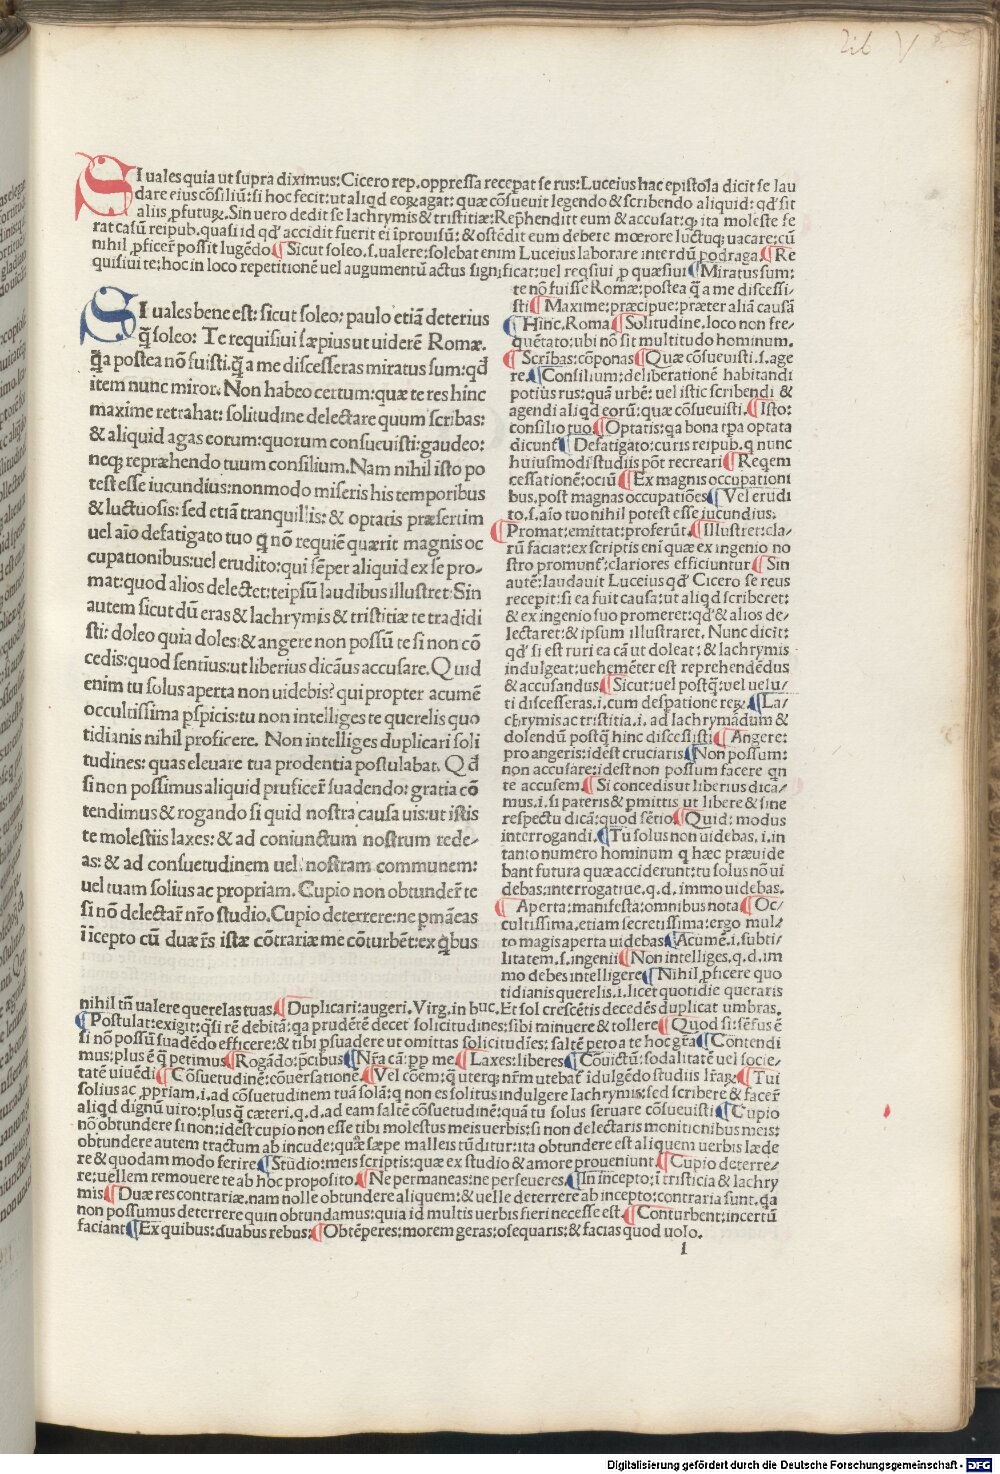 Lib V
SI uales quia ut supra diximus: Cicero rep. oppressa recepat se rus: Luceius hac epistola dicit se lau
dare eius cõsiliũ: si hoc fecit: ut aliqd eoꝝ agat: quæ cõsueuit legendo & scribendo aliquid: qd' sit
aliis ꝓfutuꝝ. Sin uero dedit se lachrymis & tristitiæ: Rep̃henditt eum & accusat: ꝙ ita moleste fe
rat casũ reipub. quasi id qd' accidit fuerit ei ĩprouisũ: & ostẽdit eum debere mœrore luctuqꝫ uacare: cũ
nihil ꝓficer̃ possit lugẽdo ¶ Sicut soleo. s. ualere: solebat enim Luceius laborare interdũ podragra ¶ Re
quisiui te: hoc in loco repetitionẽ uel augumentũ actus significat: uel reqsiui ꝓ quæsiui ¶ Miratus sum:
SI uales bene est: sicut soleo: paulo etiã deterius
q̃ soleo: Te requisiui sæpius ut uiderẽ Romæ.
q̃a postea nõ fuisti. q̃ a me discesseras miratus sum: qd̃
item nunc miror. Non habeo certum: quæ te res hinc
maxime retrahat: solitudine delectare quum scribas:
& aliquid agas eorum: quorum consueuisti: gaudeo:
neqꝫ repræhendo tuum consilium. Nam nihil isto po
test esse iucundius: nonmodo miseris his temporibus
& luctuosis: sed etiã tranquillis: & optatis præsertim
uel aĩo defatigato tuo q̃ nõ requiẽ quærit magnis oc
cupationibus: uel erudito: qui sẽper aliquid ex se pro-
mat: quod alios delectet: teipsũ laudibus illustret. Sin
autem sicut dũ eras & lachrymis & tristitiæ te tradidi
sti: doleo quia doles: & angere non possũ te si non cõ
cedis: quod sentius: ut liberius dicãus accusare. Quid
enim tu solus aperta non uidebis? qui propter acumẽ
occultissima pspicis: tu non intelliges te querelis quo
tidianis nihil proficere. Non intelliges duplicari soli
tudines: quas eleuare tua prodentia postulabat. Qd̃
si non possimus aliquid pruficer̃ suadendo: gratia cõ
tendimus & rogando si quid nostra causa uis: ut istis
te molestiis laxes: & ad coniunctum nostrum rede-
as: & ad consuetudinem uel nostram communem:
uel tuam solius ac propriam. Cupio non obtunder̃ te
si nõ delectar̃ nr̃o studio. Cupio deterrere: ne pmãeas
ĩ icepto cũ duæ r̃s istæ cõtrariæ me cõturbẽt: ex q̃bus
te nõ fuisse Romæ: postea q̃ a me discessi-
sti ¶ Maxime: præcipue: præter aliã causã
¶ Hinc. Roma ¶ Solitudine. loco non fre-
quẽtato: ubi nõ sit multitudo hominum.
¶ Scribas: cõponas ¶ Quæ cõsueuisti. s. age
re. ¶ Consilium: deliberationẽ habitandi
potius rus: quã urbẽ: uel istic scribendi &
agendi aliqd eorũ: quæ cõsueuisti. ¶ Isto:
consilio tuo. ¶ Optatis: qa bona tpa optata
dicunt ¶ Defatigato: curis reipub. q nunc
huiusmodi studiis põt recreari ¶ Reqem
cessationẽ: ociũ ¶ Ex magnis occupationi
bus. post magnas occupatiões ¶ Vel erudi
to. s. aĩo tuo nihil potest esse iucundius.
¶ Promat: emittat: proferũt. ¶ Illustret: cla-
rũ faciat: ex scriptis eni quæ ex ingenio no
stro promunt̃: clariores efficiuntur ¶ Sin
autẽ: laudauit Luceius qd' Cicero se reus
recepit: si ea fuit causa: ut aliqd scriberet:
& ex ingenio suo promeret: qd' & alios de-
lectaret: & ipsum illustraret. Nunc dicit:
qd' si est ruri ea cã ut doleat: & lachrymis
indulgeat: uehemẽter est reprehendẽdus
& accusandus ¶ Sicut: uel postq̃: uel uelu-
ti discesseras. i. cum despatione reꝝ. ¶ La-
chrymis ac tristitia. i. ad lachrymãdum &
dolendũ postq̃ hinc discessisti ¶ Angere:
pro angeris: idest cruciaris ¶ Non possum:
non accusare: idest non possum facere qn
te accusem ¶ Si concedis ut liberius dica-
mus. i. si pateris & pmittis ut libere & sine
respectu dicã: quod sẽtio ¶ Quid: modus
interrogandi. ¶ Tu solus non uidebas. i. in
tanto numero hominum q hæc præuide
bant futura quæ acciderunt: tu solus nõ ui
debas: interrogatiue. q. d. immo uidebas.
¶ Aperta: manifesta: omnibus nota ¶ Oc-
cultissima. etiam secretissima: ergo mul-
to magis aperta uidebas ¶ Acumẽ. i. subti-
litatem. s. ingenii ¶ Non intelliges. q. d. im
mo debes intelligere ¶ Nihil ꝓficere quo
tidianis querelis. i. licet quotidie queraris
nihil tñ ualere querelas tuas. ¶ Duplicari: augeri. Virg. in buc. Et sol crescẽtis decedẽs duplicat umbras.
¶ Postulat: exigit: q̃si rẽ debitã: qa prudẽtẽ decet solicitudines: sibi minuere & tollere ¶ Quod si: sẽsus ẽ
si nõ possũ suadẽdo efficere: & tibi ꝑsuadere ut omittas solicitudĩes: saltẽ peto a te hoc gr̃a ¶ Contendi
mus: plus ẽ q̃ petimus ¶ Rogãdo: p̃cibus ¶ Nr̃a cã: pp me ¶ Laxes: liberes ¶ Cõuictũ: sodalitatẽ uel socie-
tatẽ uiuẽdi ¶ Cõsuetudinẽ: cõuersationẽ. ¶ Vel cõem: q̃ uterqꝫ nr̃m utebat̃ ĩdulgẽdo studiis lr̃aꝝ ¶ Tui
solius ac ꝓpriam. i. ad cõsuetudinem tuã solã: q non es solitus indulgere lachrymis: sed scribere & facer̃
aliqd dignũ uiro: plus q̃ cæteri. q. d. ad eam saltẽ cõsuetudinẽ: quã tu solus seruare cõsueuisti ¶ Cupio
nõ obtundere si non: idest cupio non esse tibi molestus meis uerbis: si non delectaris monitionibus meis:
obtundere autem tractum ab incude: quæ sæpe malleis tũditur: ita obtundere est aliquem uerbis læde
re & quodam modo ferire ¶ Studio: meis scriptis: quæ ex studio & amore proueniunt. ¶ Cupio deterre-
re: uellem remouere te ab hoc proposito. ¶ Ne permaneas: ne perseueres ¶ In incepto: ĩ tristicia & lachry
mis ¶ Duæ res contrariæ. nam nolle obtundere aliquem: & uelle deterrere ab incepto: contraria sunt. qa
non possumus deterrere quin obtundamus: quia id multis uerbis fieri necesse est. ¶ Conturbent: incertũ
faciant ¶ Ex quibus: duabus rebus: ¶ Obtẽperes: morem geras: osequaris: & facias quod uolo.
l
Digitalisierung gefördert durch die Deutsche Forschungsgemeinschaft - DFG